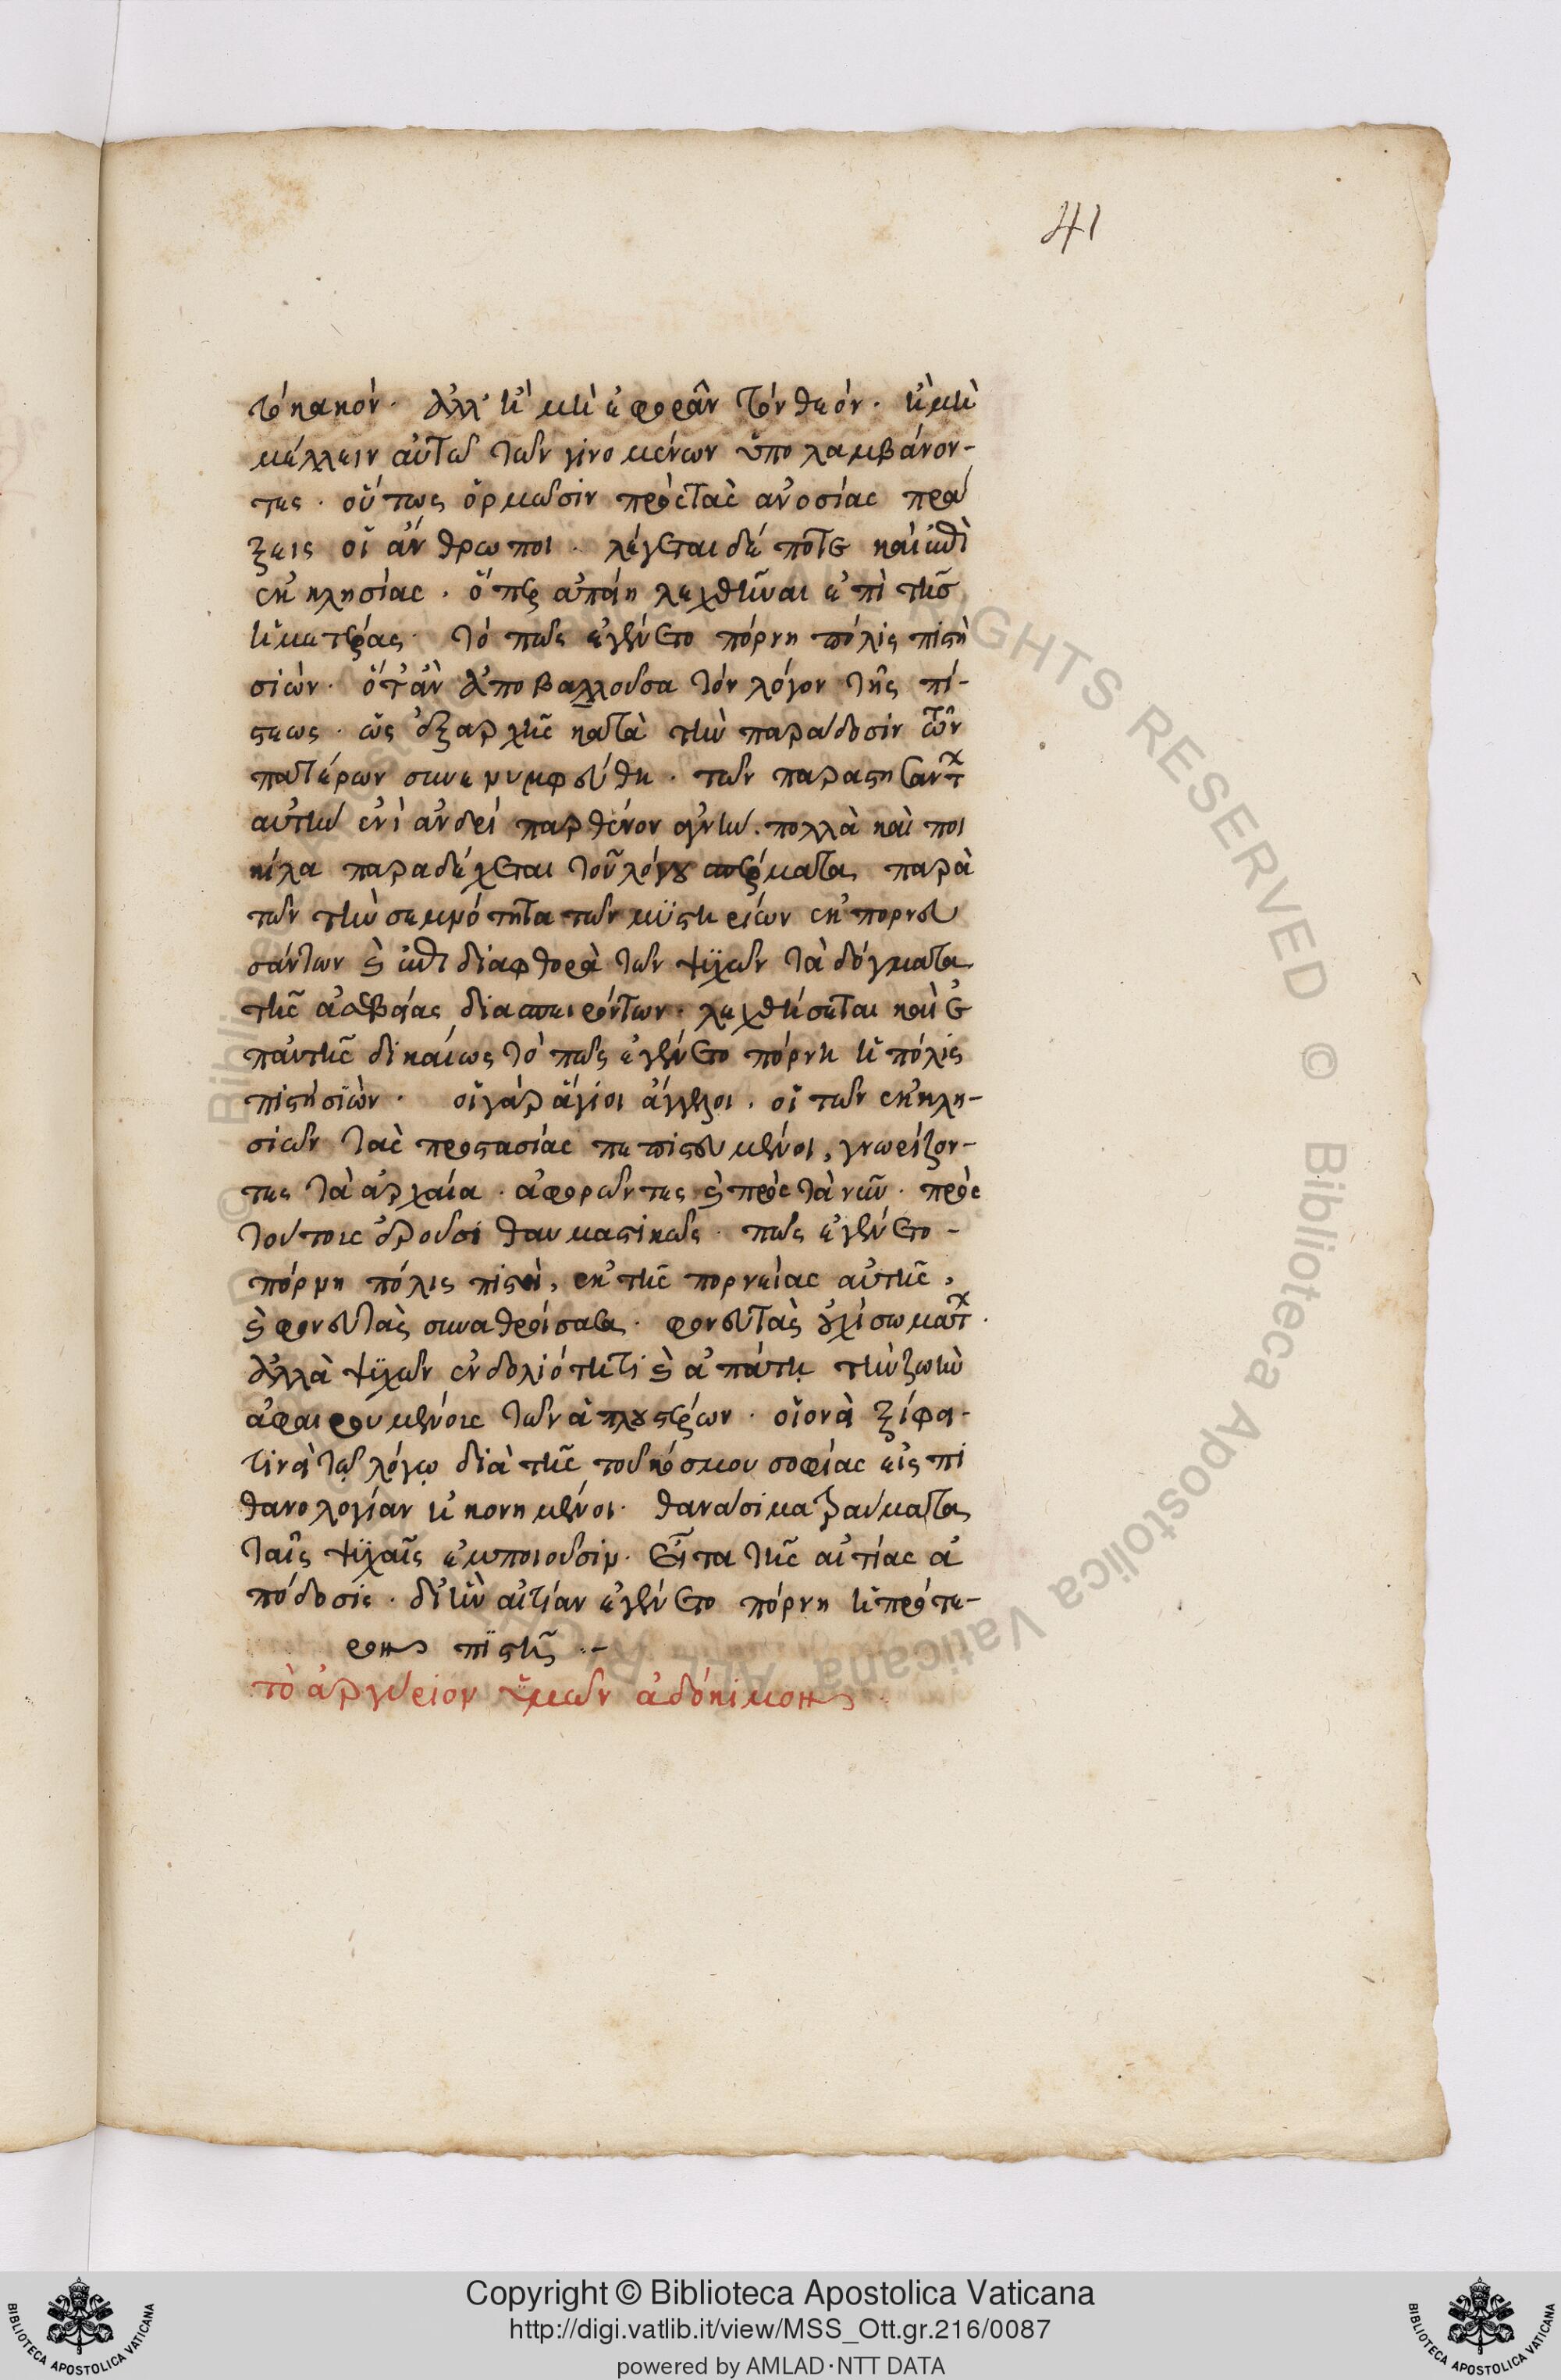 41
τὸ κακόν. ἀλλ' ἢ μὴ ἐφορᾶν τὸν θεόν. ἢ μὴ
μέλλειν αὐτῶ τῶν γινομένων ὑπολαμβάνον-
τες. οὕτως ὁρμῶσιν πρὸς τὰς ἀνοσίας πρά
ξεις οἱ ἄνθρωποι. λέγεται δέ ποτε καὶ ἐπὶ
ἐκκλησίας. ὅπερ ἀπάη λεχθῆναι ἐπὶ τῆς
ἡμετέρας. τὸ πῶς ἐγένετο πόρνη πόλις πιστὴ
σιών. ὅτ' ἂν ἀποβαλλοῦσα τὸν λόγον τῆς πί-
στεως. ὡς ἐξαρχῆς κατὰ τὴν παράδοσιν τῶν
πατέρων συνενυμφεύθη. τῶν παραστησάντ
αὐτὴν ἑνὶ ἀνδρὶ παρθένον ἁγνήν. πολλὰ καὶ ποι
κίλα παραδέχεται τοῦ λόγου σπέρματα παρὰ
τῶν τὴν σεμνότητα τῶν μυστηρίων ἐκπορνευ
σάντων καὶ ἐπι διαφθορὰ τῶν ψυχῶν τὰ δόγματα
τῆς ἀσεβείας διασπειρόντων. λεχθήσεται καὶ ἐ
π' αὐτῆς δικαίως τὸ πῶς ἐγένετο πόρνη ἡ πόλις
πιστὴ σιών. οἱ γὰρ ἅγιοι ἄγγελοι. οἱ τῶν ἐκκλη-
σιῶν τὰς προστασίας πεπιστευμένοι, γνωρίζον-
τες τὰ ἀρχαία. ἀφορῶντες καὶ πρὸς τὰ νῦν. πρὸς
τούτοις ἐροῦσι θαυμαστικῶς. πῶς ἐγένετο-
πόρνη πόλις πιστὴ, ἐκ τῆς πορνείας αὐτῆς,
καὶ φονευτὰς συναθροίσασα. φονευτὰς οὐχὶ σωμάτ.
ἀλλὰ ψυχῶν ἐν δολιότητι καὶ ἀπάτη τὴν ζωὴν
ἀφαιρουμένοις τῶν ἁπλουστέρων. οἱονεὶ ξίφει-
τινὶ τῷ λόγῳ διὰ τῆς τοῦ κόσμου σοφίας εἰς πι
θανολογίαν ἠκονημένοι. θανάσιμα τραύματα
ταῖς ψυχαῖς ἐμποιοῦσιν. εἶτα τῆς αἰτίας ἀ
πόδοσις. δι' ἣν αἰτίαν ἐγένετο πόρνη ἡ πρότε-
ρον πιστῆς
τὸ ἀργύριον ὑμῶν ἀδόκιμον
Copyright © Biblioteca Apostolica Vaticana
http://digi.vatlib.it/view/MSS_Ott.gr.216/0087
powered by AMLAD·NTT DATA